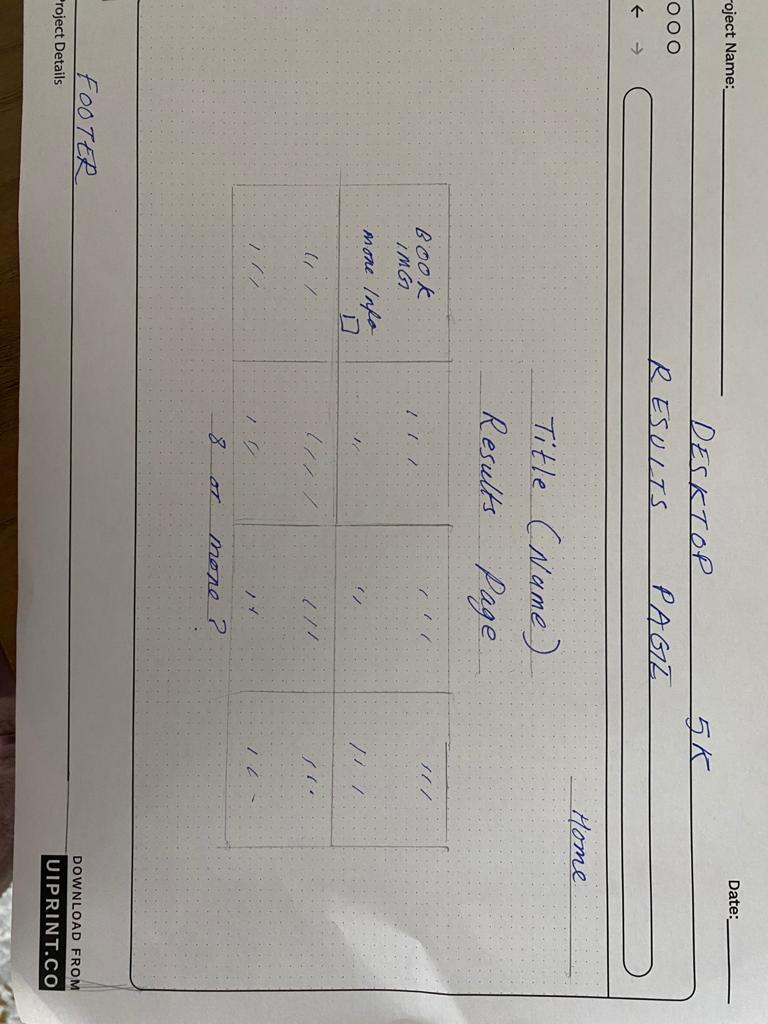 roject Name:
Date:
DESKTOP 5K
RESULTS PAGE
Home
Title (Name)
Results Page
BOOK
IMG
more Info
8 or more?
FOOTER
roject Details
DOWNLOAD FROM
UIPRINT.CO